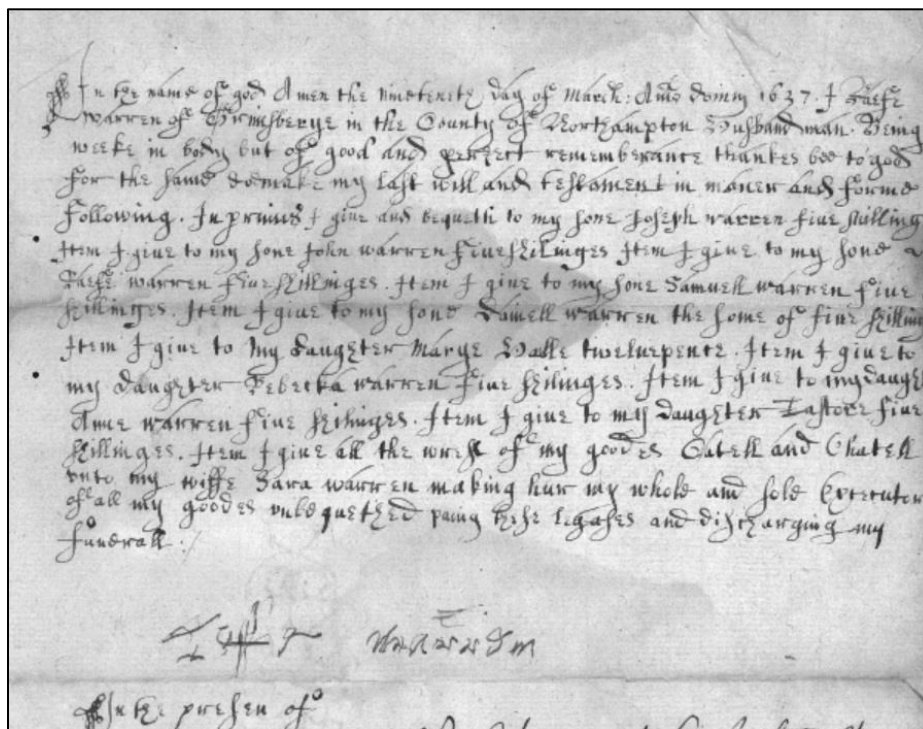 In the name of god Amen the nineteenth day of March: Anno domini 1637. I Raefe
warren of Grimsberye in the County of Northampton Husbandman. Being
weeke in body but of good and perfect rememberance thankes bee to god
for the same do make my last will and testament in maner and forme
following. Inprimis I give and bequeth to my sone Joseph warren five shilling
Item I give to my sone John warren five shillinges Item I give to my sone
Raefe warren five shillinges. Item I give to my sone Samuell warren five
shillinges. Item I give to my sone Daniell warren the some of five shilling
Item I give to my daughter Marye twelvepence. Item I give to
my daughter Rebecka warren five shilinges. Item I give to my daugh
Anne warren five shilinges. Item I give to my daughter five
shillinges. Item I give all the wrest of my goodes Catell and Chatell
unto my wiffe Sara warren making hur my whole and sole Executor
of all my goodes unbequethed paing these legases and discharging my
funerall.
In the presen of